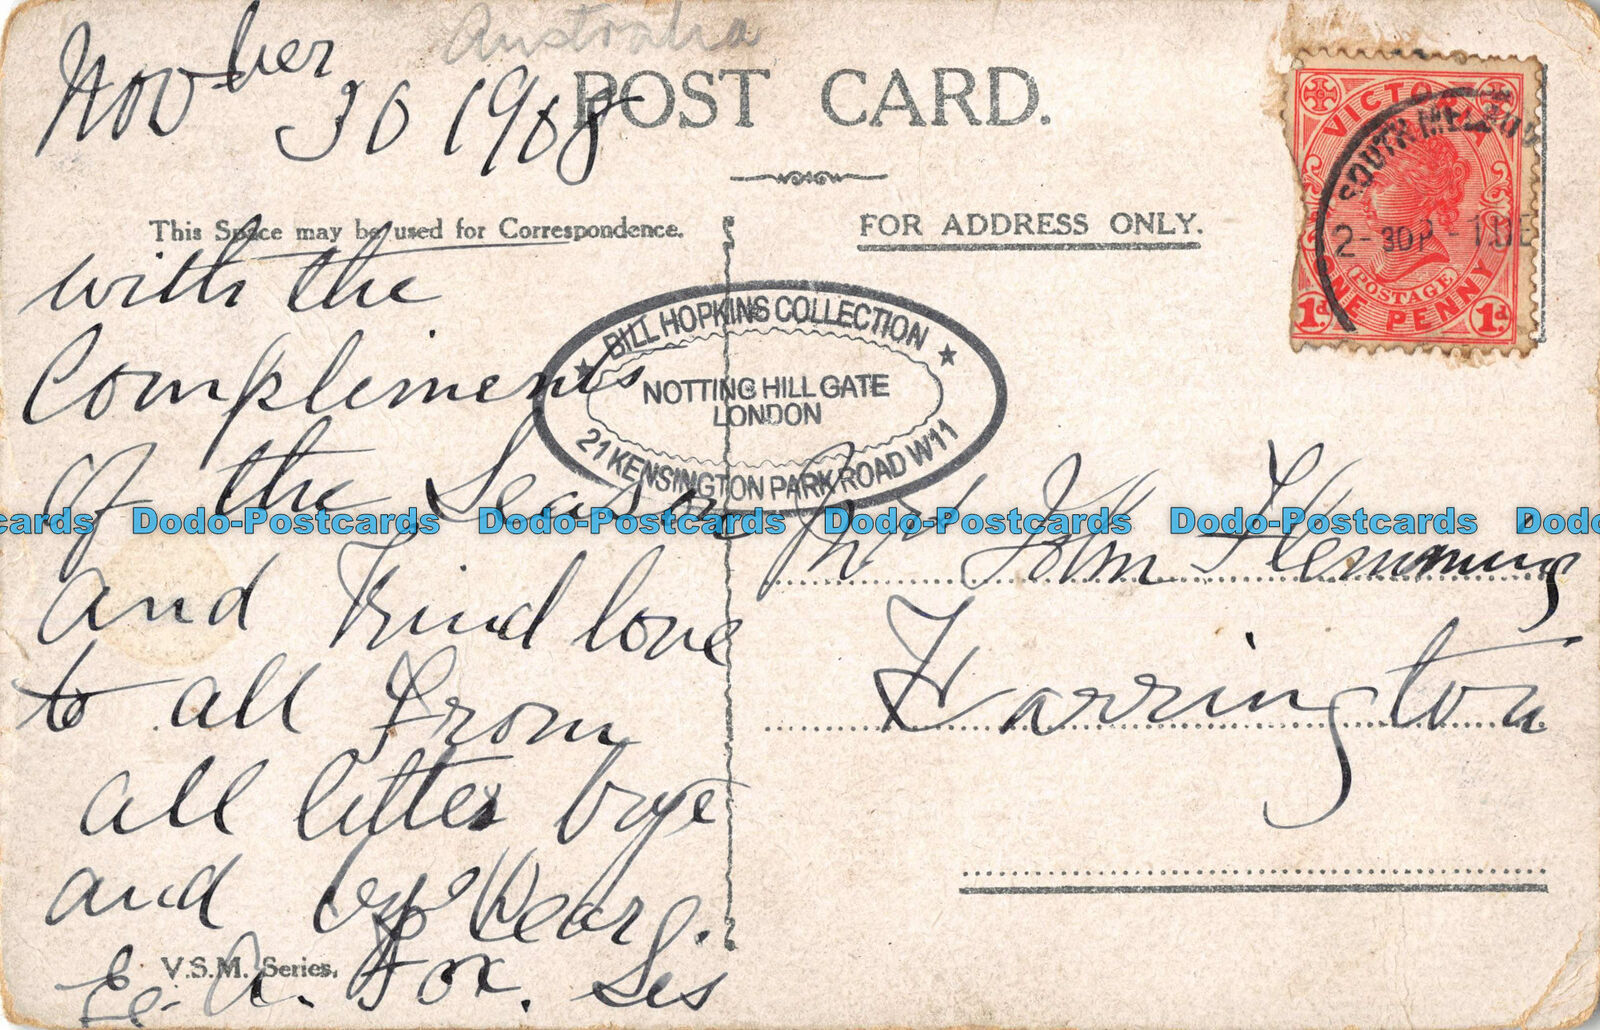 Australia
Novber 30 1908
POST CARD.
This Space may be used for Correspondence.
FOR ADDRESS ONLY.
with the
Compliments
of the Season
and Kind love
to all From
all litter bye
and bye Dear
E. A. Fox. Sis
V.S.M. Series.
Mr John Flemming
Harrington
VICTORIA
POSTAGE
ONE PENNY
1d. 1d.
SOUTH MELBOU
2-30P-1DE
BILL HOPKINS COLLECTION
NOTTING HILL GATE
LONDON
21 KENSINGTON PARK ROAD W11
cards Dodo-Postcards Dodo-Postcards Dodo-Postcards Dodo-Postcards Dodo